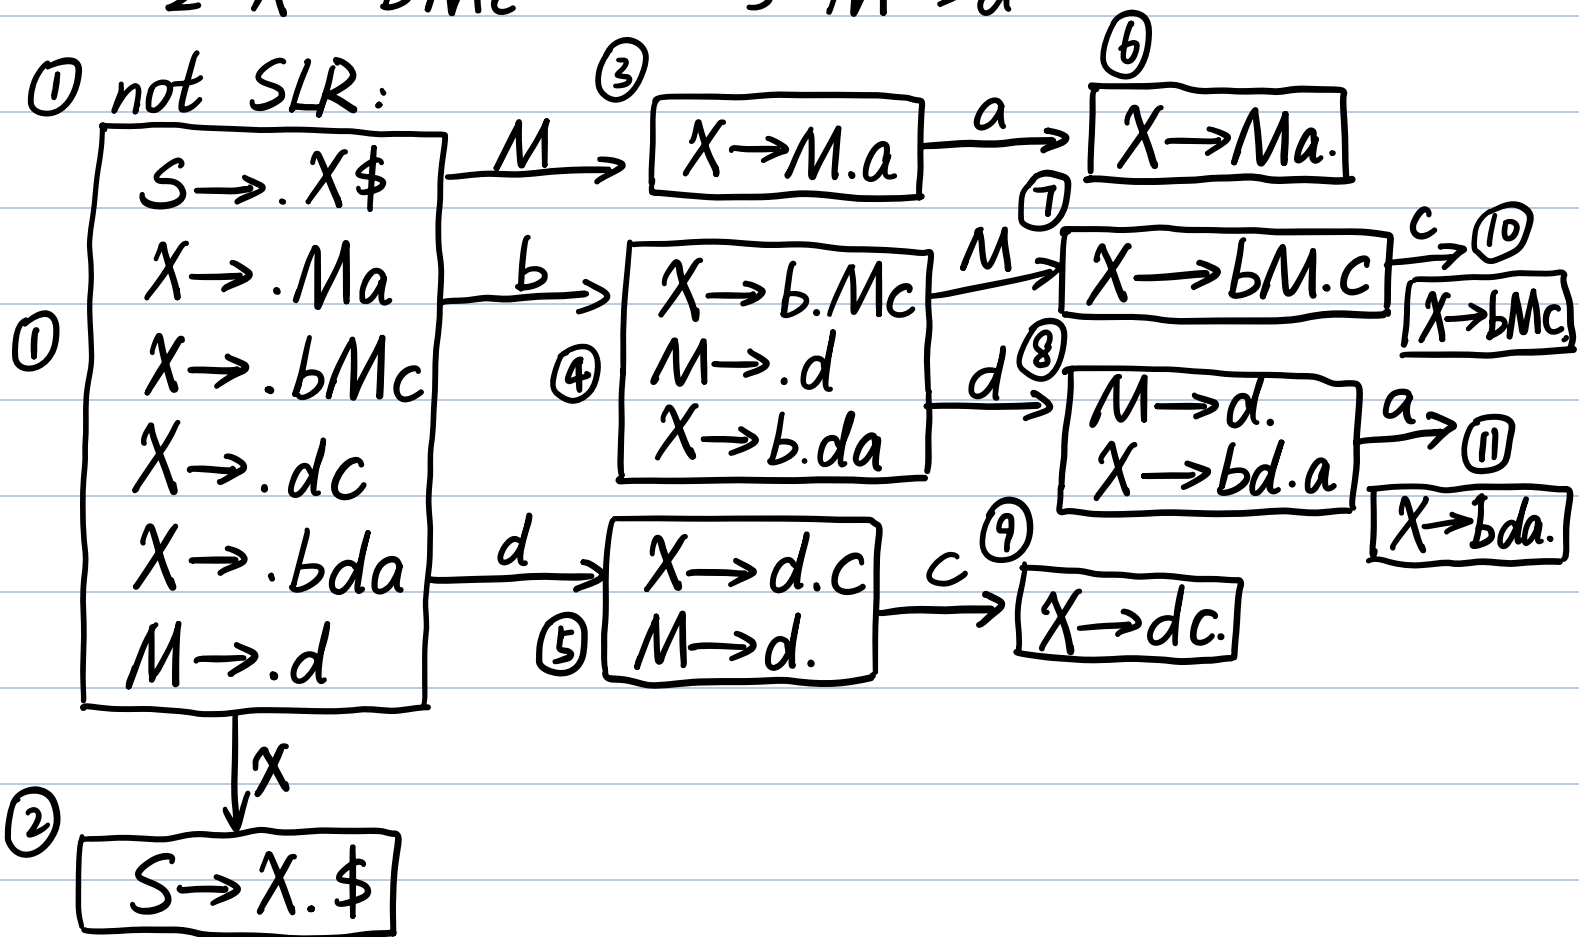 2 X → bMc 5 M → d
① not SLR:
①
S → . X$
X → . Ma
X → . bMc
X → . dc
X → . bda
M → . d
M
③
X → M . a
a
⑥
X → Ma .
b
④
X → b . Mc
M → . d
X → b . da
M
⑦
X → bM . c
c
⑩
X → bMc .
d
⑧
M → d .
X → bd . a
a
⑪
X → bda .
d
⑤
X → d . c
M → d .
c
⑨
X → dc .
X
②
S → X . $